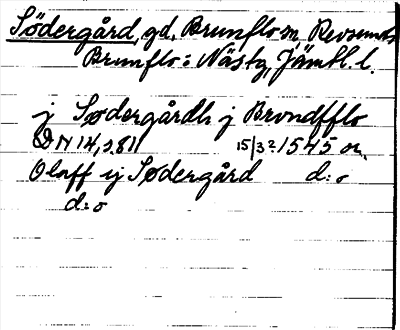 Södergård, gd, Brunflo sn, Revsunds
Brunflo: Näsby, Jämtl. l.
j Södergårdh j Brvndfflo
DN 14, 281 15/3 1545 or.
Olaff ij Södergård d:o
d:o